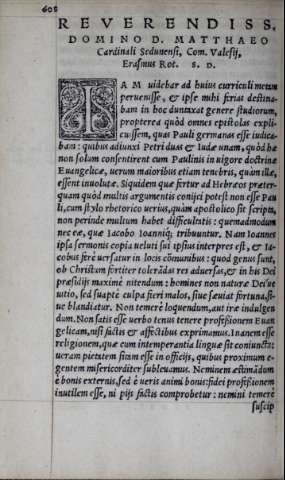 608
REVERENDISS.
DOMINO D. MATTHAEO
Cardinali Sedunensi, Com. Valesij,
Erasmus Rot. S. D.
IAM uidebar ad huius curriculi metam
peruenisse, & ipse mihi ferias destina-
bam in hoc duntaxat genere studiorum,
propterea quòd omnes epistolas expli-
cuissem, quas Pauli germanas esse iudica-
bam: quibus adiunxi Petri duas & Iudæ unam, quòd hæ
non solum consentirent cum Paulinis in uigore doctrinæ
Euangelicæ, uerum maioribus etiam tenebris, quàm illæ,
essent inuolutæ. Siquidem quæ fertur ad Hebræos præter-
quam quòd multis argumentis conijci potest non esse Pau
li, cum stylo rhetorico uerius, quàm apostolico sit scripta,
non perinde multum habet difficultatis: quemadmodum
nec eæ, quæ Iacobo Ioanniq; tribuuntur. Nam Ioannes
ipsa sermonis copia ueluti sui ipsius interpres est, & Ia-
cobus ferè uersatur in locis cōmunibus: quod genus sunt,
ob Christum fortiter tolerādas res aduersas, & in his Dei
præsidijs maximè nitendum: homines non naturæ Dei ue
uitio, sed suapte culpa fieri malos, siue sæuiat fortuna, si-
ue blandiatur. Non temerè loquendum, aut iræ indulgen
dum. Non satis esse uerbo tenus tenere professionem Euan
gelicam, nisi factis & affectibus exprimamus. Inanem esse
religionem, quæ cum intemperantia linguæ sit coniuncta:
ueram pietatem sitam esse in officijs, quibus proximum e-
gentem misericorditer subleuamus. Neminem æstimādum
è bonis externis, sed è ueris animi bonis: fidei professionem
inutilem esse, ni pijs factis comprobetur: nemini temerè
suscip